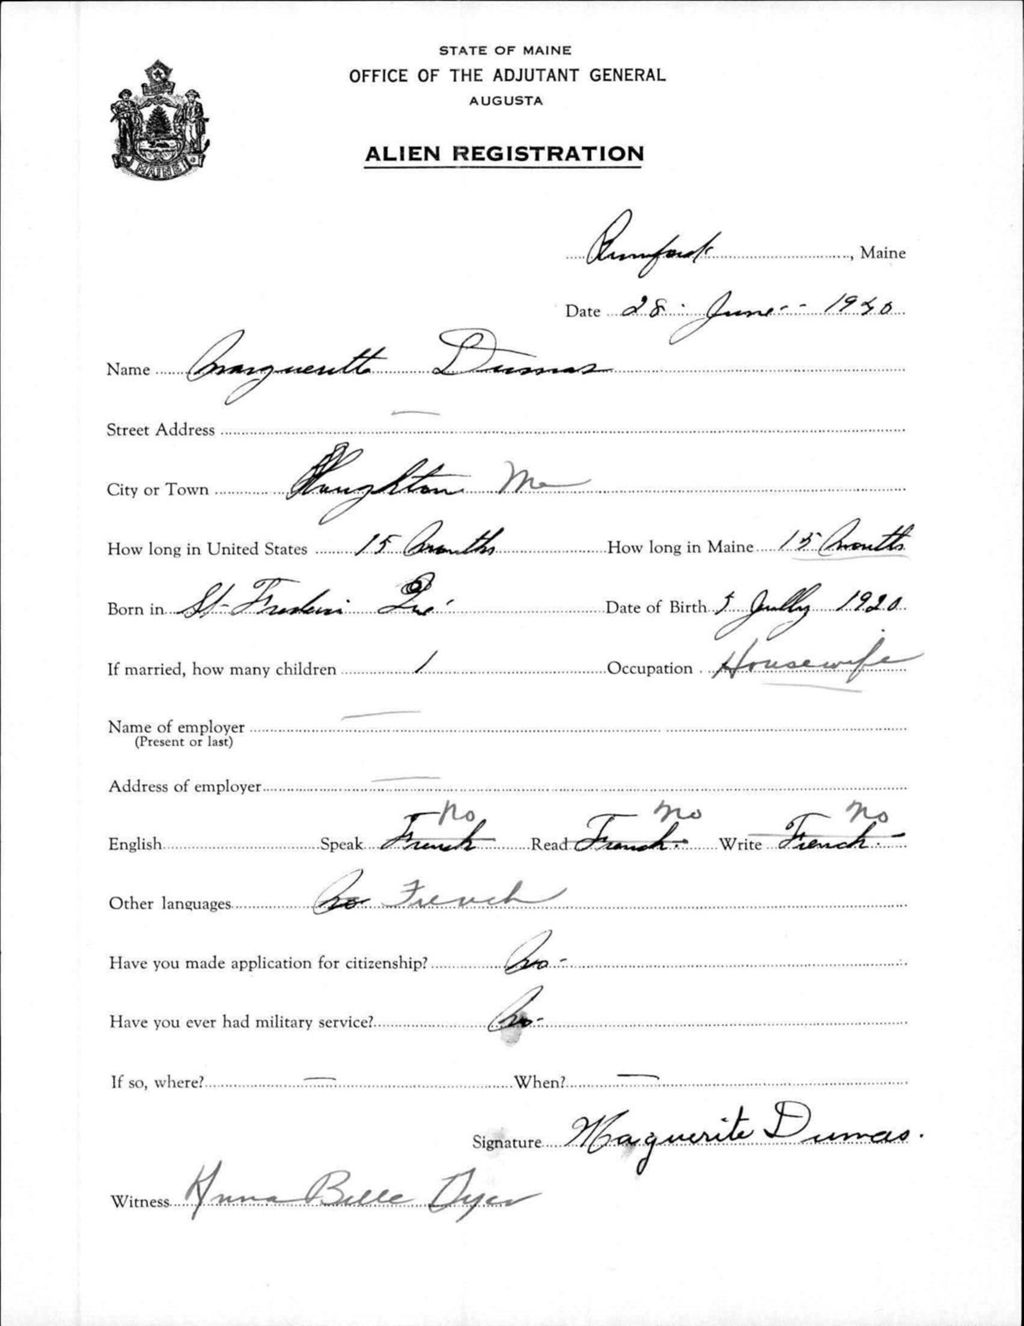 STATE OF MAINE
OFFICE OF THE ADJUTANT GENERAL
AUGUSTA
ALIEN REGISTRATION
MAINE
Rumford, Maine
Date 28 June 1940
Name Margueritte Dumas
Street Address —
City or Town Houghton Me
How long in United States 15 Months How long in Maine 15 Months
Born in St-Frederic Que. Date of Birth 5 Jully 1920
If married, how many children 1 Occupation Housewife
Name of employer —
(Present or last)
Address of employer —
No No No
English Speak French Read French. Write French.-
Other languages No French
Have you made application for citizenship? No-
Have you ever had military service? No-
If so, where? — When? —
Signature Maguerite Dumas.
Witness Anna Belle Dyer